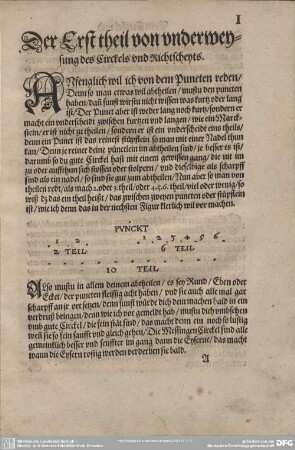 I
Der Erst theil von vnderwey-
sung des Circkels vnd Richtscheyts.
ANfenglich wil ich von dem Puncten reden/
Denn so man etwas wil abtheilen/ mustu den puncten
haben/ daß sunst wirstu nicht wissen was kurtz oder lang
ist/ Der Punct aber ist weder lang noch kurtz/ sondern er
macht ein vnderscheidt zwischen kurtzen vnd langen/ wie ein Marck-
stein/ er ist nicht zu theilen/ sondern er ist ein vnderscheide eins theils/
denn ein Punct ist das reinest stüpflein so man mit einer Nadel thun
kan/ Denn je reiner deine pünctlein im abtheilen sind/ je besser es ist/
darumb so du gute Circkel hast mit einem gewissen gang/ die nit im
zu oder aufftthun sich stossen oder stolpern/ vnd dieselbige als scharpff
sind als ein nadel/ so sind sie gut zum abtheilen/ Nun aber so man von
theilen redt/ als nach 2. oder 3. theil/ oder 4.5.6. theil/ viel oder wenig/ so
wiß daß das ein theil heist/ das zwischen zweyen puncten oder stüpflein
ist/ wie ich denn das in der nechsten Figur klerlich wil vor machen.
PVNCKT
1 2 1 2 3 4 5 6
2 TEIL 6 TEIL
10 TEIL
ALso mustu in allem deinem abtheilen/ es sey Rund/ Eben oder
Ecket/ der puncten fleissig acht haben/ vnd sie auch alle mal gar
scharpff vnd
verdruß bringen/ denn wie ich vor gemelt hab/ mustu dich vmbsehen
vmb gute Circkel/ die fein stät sind/ das macht denn ein noch so lustig
werck so sie fein sanfft vnd gleich gehen/ Die Messingen Circkel sind alle
gemeinklich besser vnd senffter im gang dann die Eysern/ das macht
wann die Eysern rostig werden verderben sie bald.
A